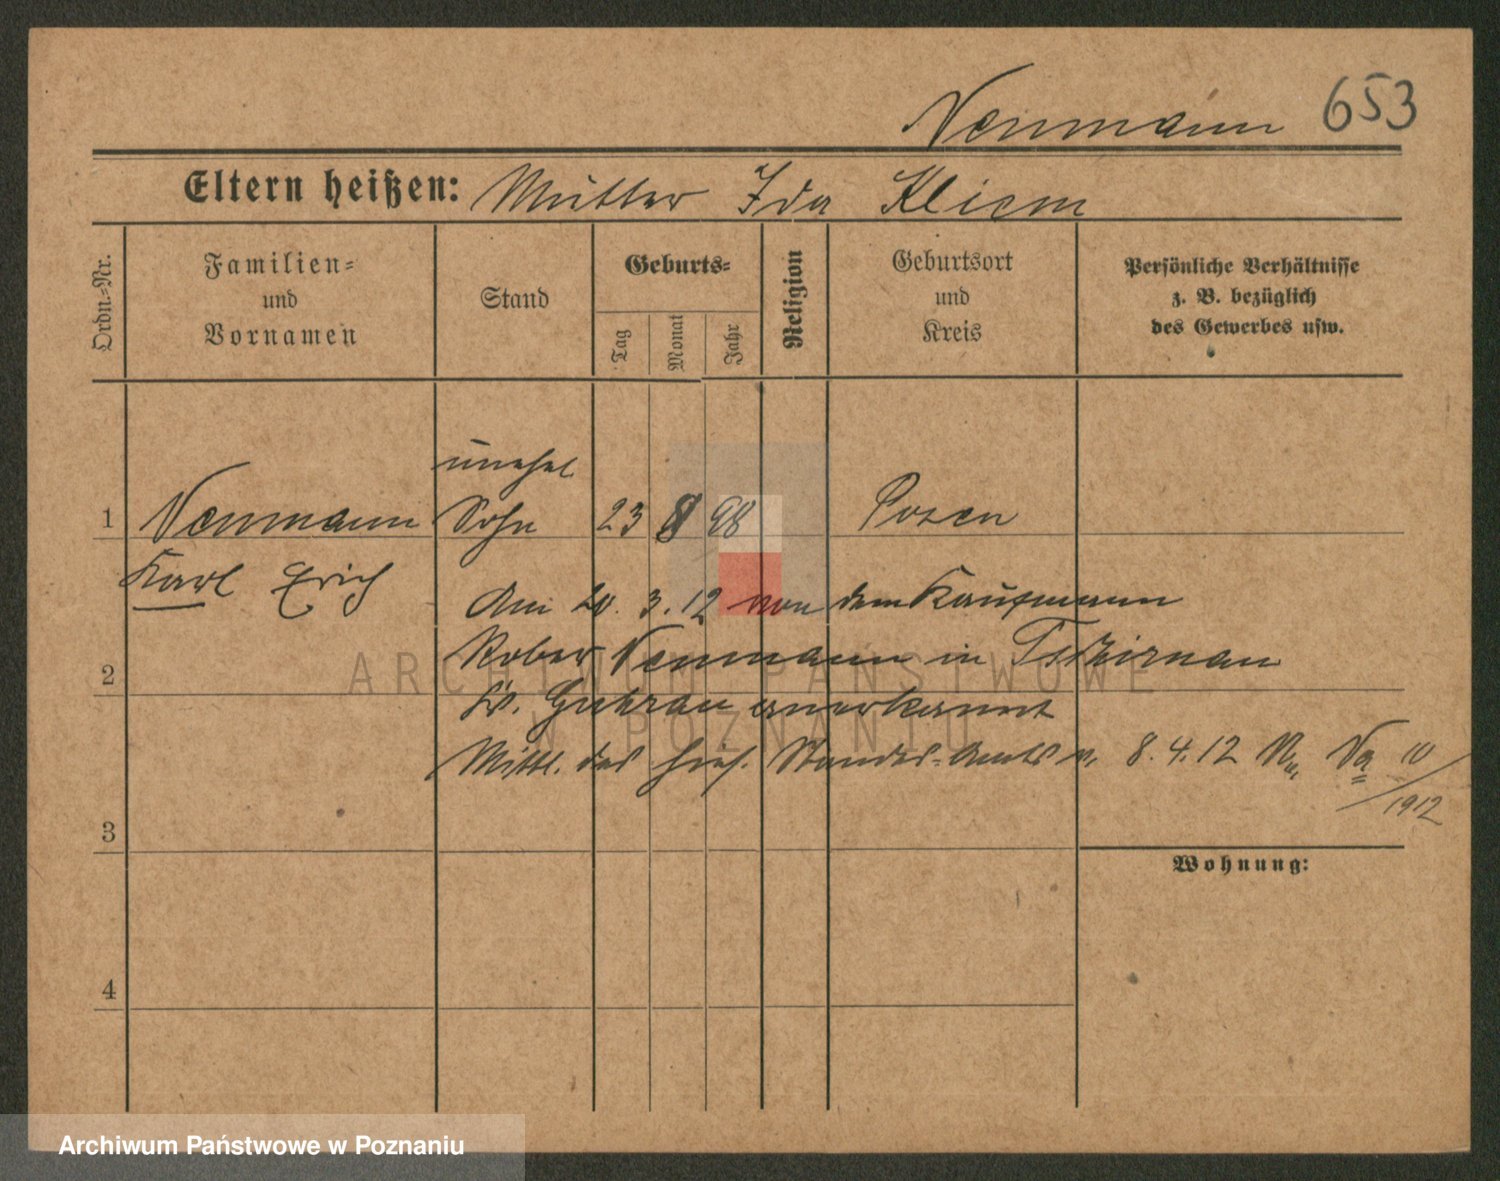 Neumann 653
Eltern heißen: Mutter Ida Kliem
Ordn.-Nr.
Familien- und Vornamen
Stand
Geburts-
Tag
Monat
Jahr
Religion
Geburtsort und Kreis
Persönliche Verhältnisse
z. B. bezüglich
des Gewerbes usw.
unehel
1 Neumann Sohn 23 8 98 Posen
Karl Erich
Am 20. 3. 12 von dem Kaufmann
Rober Neumann in Tschirnau
2
Kr. Guhrau anerkannt
Mittl. des hies. Standes-Amts v. 8. 4. 12 10
1912
3
Wohnung:
4
ARCHIWUM PAŃSTWOWE
W POZNANIU
Archiwum Państwowe w Poznaniu